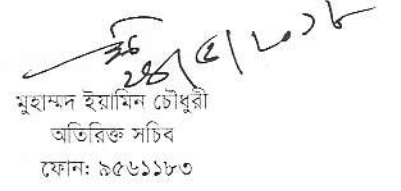 ২৪/৫/২০১৮
মুহাম্মদ ইয়ামিন চৌধুরী
অতিরিক্ত সচিব
ফোন: ৯৫৬১১৮৩